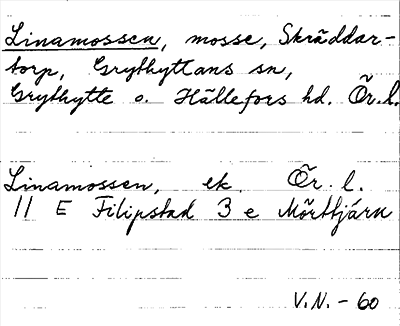 Linamossen, mosse, Skräddar-
torp, Grythyttans sn,
Grythytte o. Hällefors hd. Ör. l.
Linamossen, ek. Ör. l.
11 E Filipstad 3 e Mörttjärn
V.N. - 60